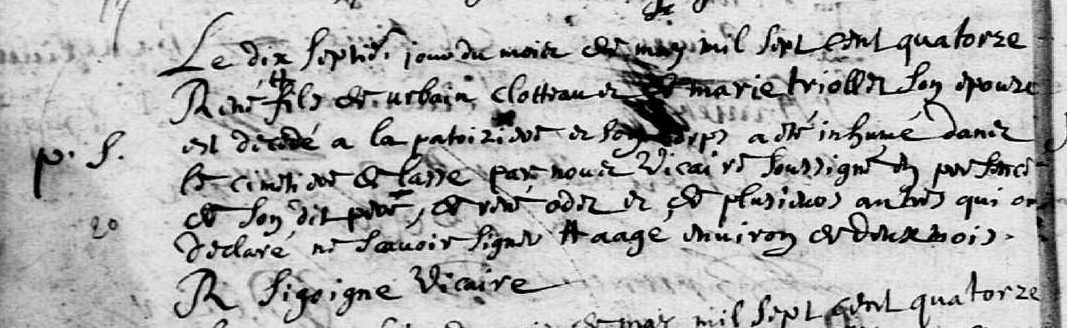 Le dix septi jour du mois de may mil sept cent quatorze
René # fils de urbain clotteau et marie triollet son epouze
est décédé a la patrizierre et son corps a eté inhumé dans
le cimetiere de par nous Vicaire soussigné en presence
de son dit pere, de rené odet et de plusieurs autres qui on
declaré ne scavoir signer # aagé environ de deux mois.
p. s.
20
R Sigoigne Vicaire
may mil sept cent quatorze